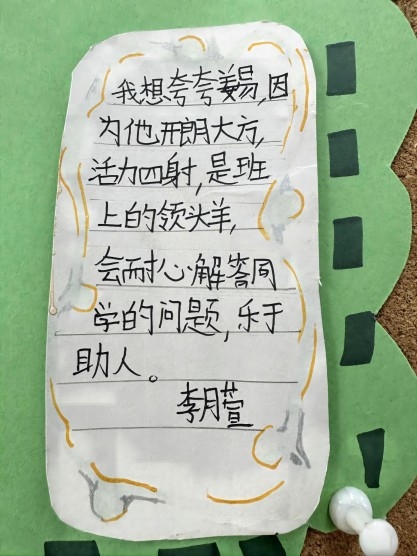 我想夸夸姜易,因
为他开朗大方,
活力四射,是班
上的领头羊,
会耐心解答同
学的问题,乐于
助人。
李月萱